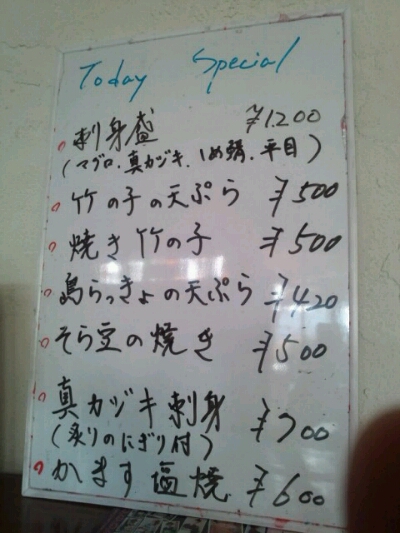 Today Special
刺身盛 ¥1.200
(マグロ.真カジキ.しめ鯖.平目)
竹の子の天ぷら ¥500
焼き竹の子 ¥500
島らっきょの天ぷら ¥420
そら豆の焼き ¥500
真カジキ刺身 ¥700
(炙りのにぎり付)
かます塩焼 ¥600